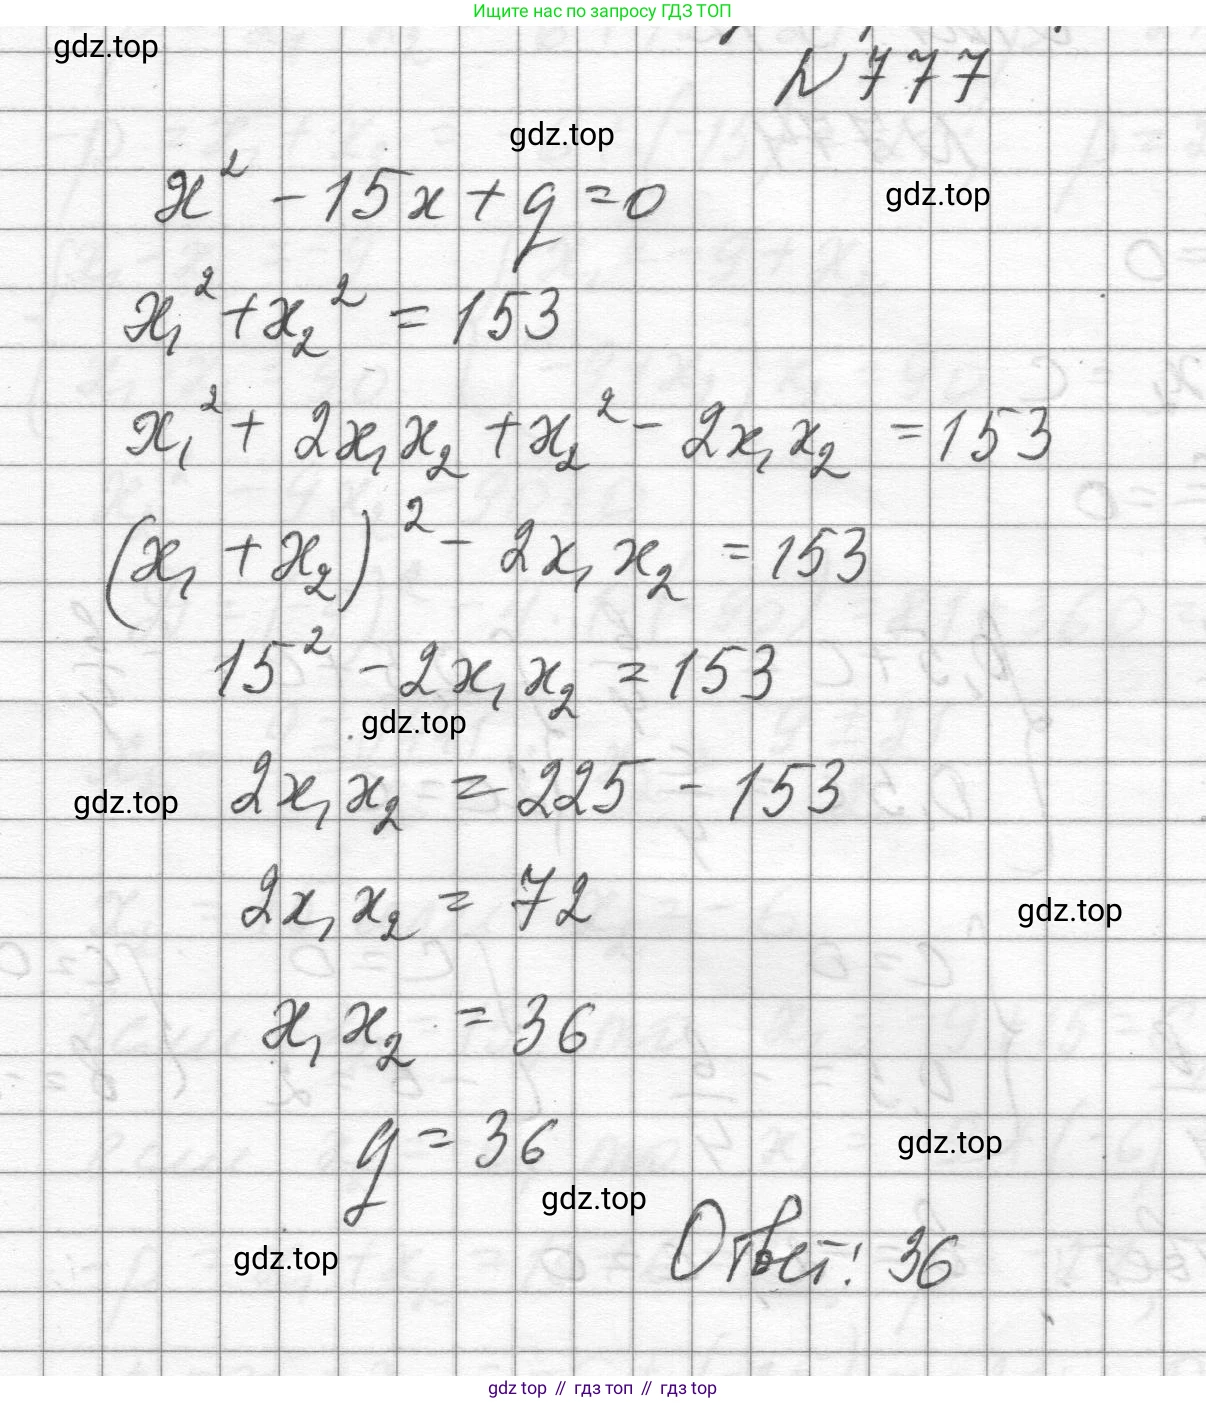 Ищите нас по запросу ГДЗ ТОП
gdz.top
N 777
gdz.top
x² - 15x + q = 0
gdz.top
x₁² + x₂² = 153
x₁² + 2x₁x₂ + x₂² - 2x₁x₂ = 153
(x₁ + x₂)² - 2x₁x₂ = 153
15² - 2x₁x₂ = 153
gdz.top
2x₁x₂ = 225 - 153
gdz.top
2x₁x₂ = 72
gdz.top
x₁x₂ = 36
q = 36
gdz.top
gdz.top
Ответ: 36
gdz.top
gdz top // гдз топ // gdz top